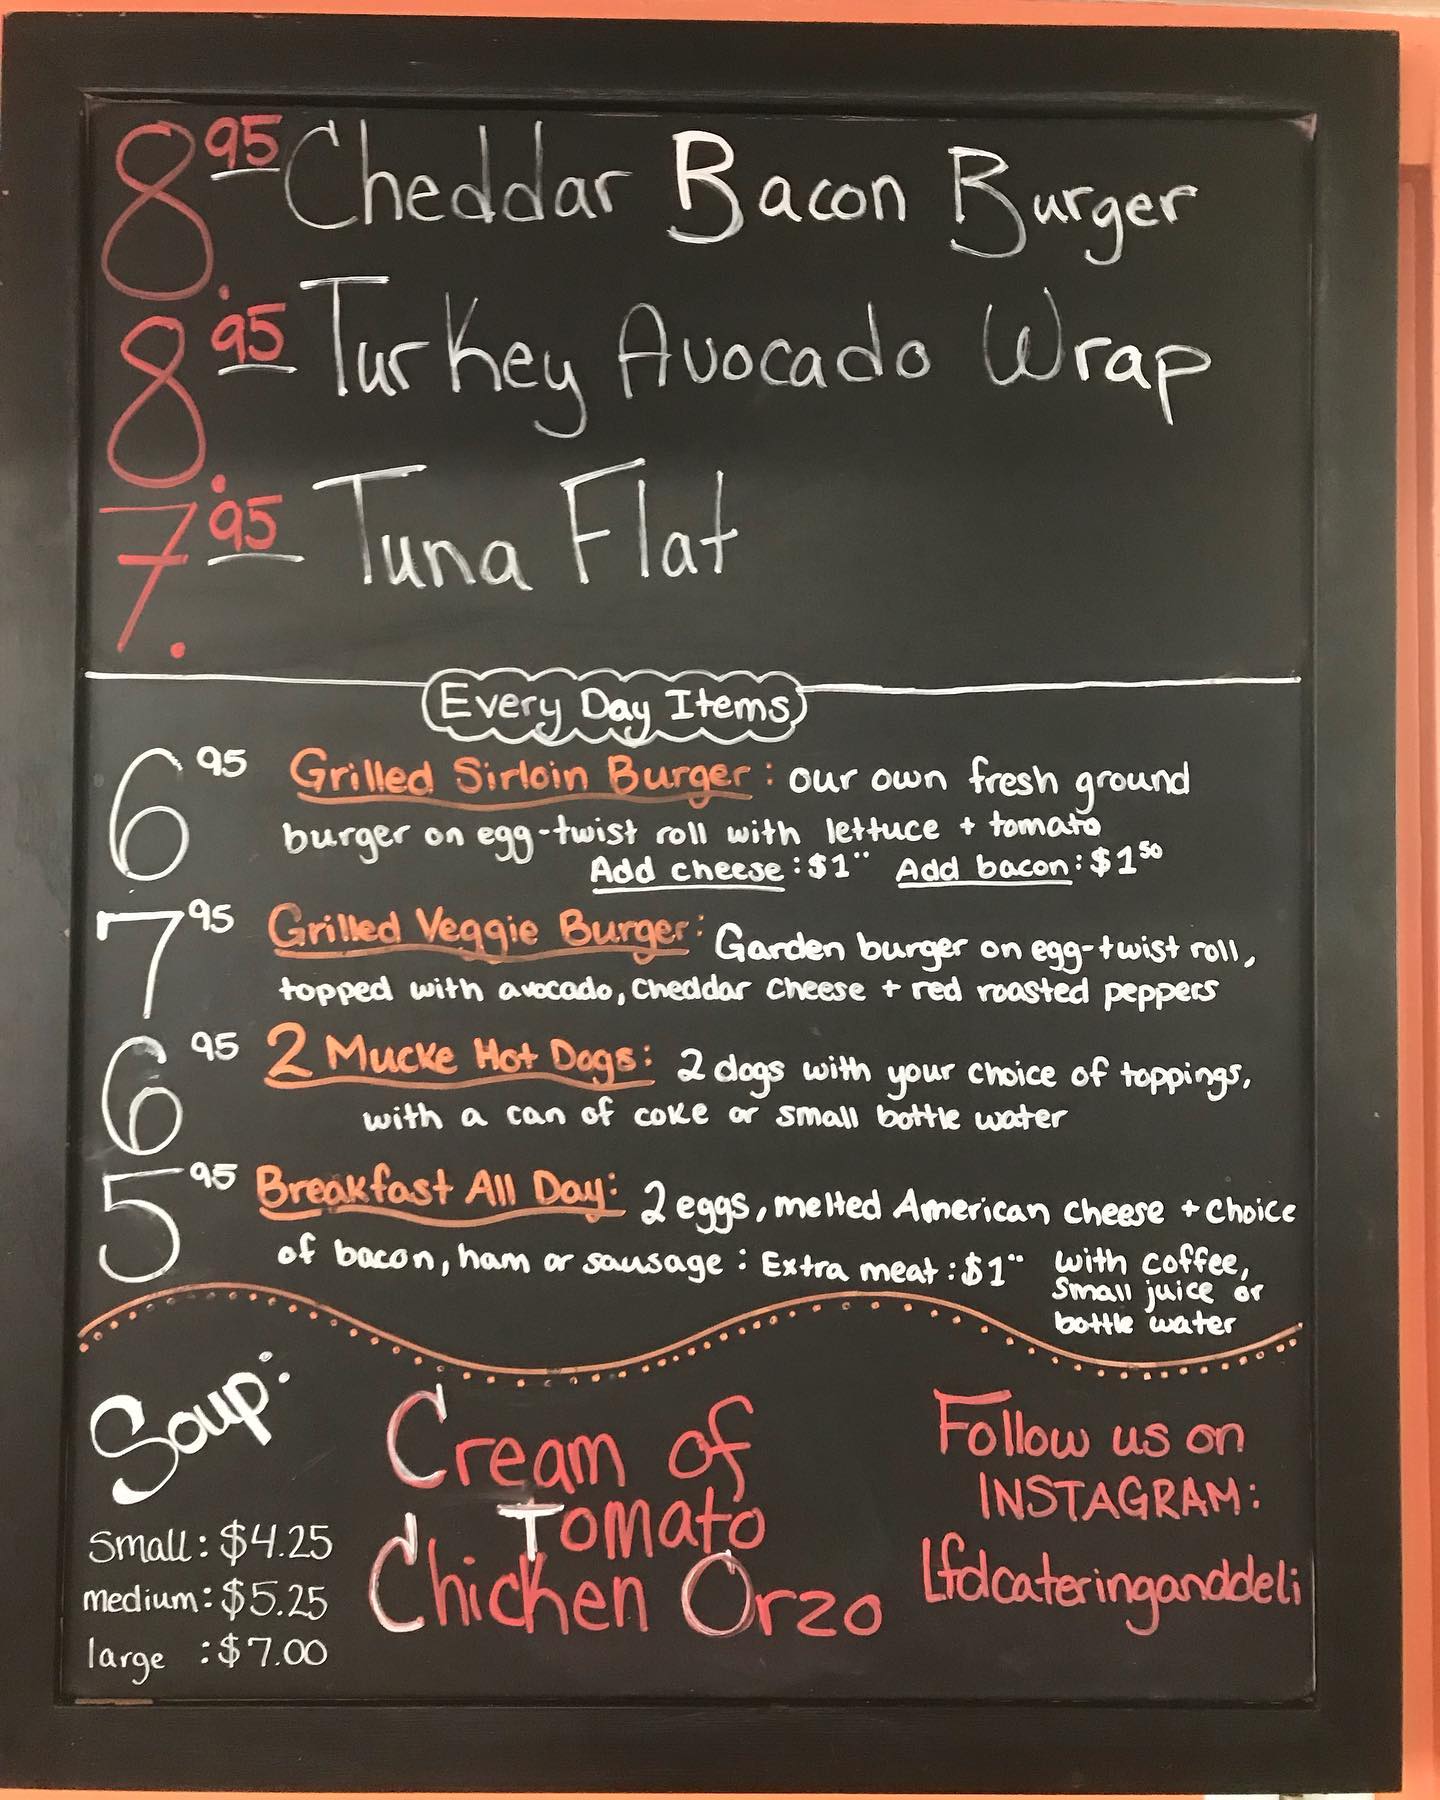 8.95 Cheddar Bacon Burger
8.95 Turkey Avocado Wrap
7.95 Tuna Flat
Every Day Items
6 95 Grilled Sirloin Burger: our own fresh ground
burger on egg-twist roll with lettuce + tomato
Add cheese: $1 Add bacon: $1 50
7 95 Grilled Veggie Burger: Garden burger on egg-twist roll,
topped with avocado, cheddar cheese + red roasted peppers
6 95 2 Mucke Hot Dogs: 2 dogs with your choice of toppings,
with a can of coke or small bottle water
5 95 Breakfast All Day: 2 eggs, melted American cheese + choice
of bacon, ham or sausage: Extra meat: $1 with coffee,
small juice or
bottle water
Soup:
small: $4.25
medium: $5.25
large: $7.00
Cream of
Tomato
Chicken Orzo
Follow us on
INSTAGRAM:
Lfdcateringanddeli